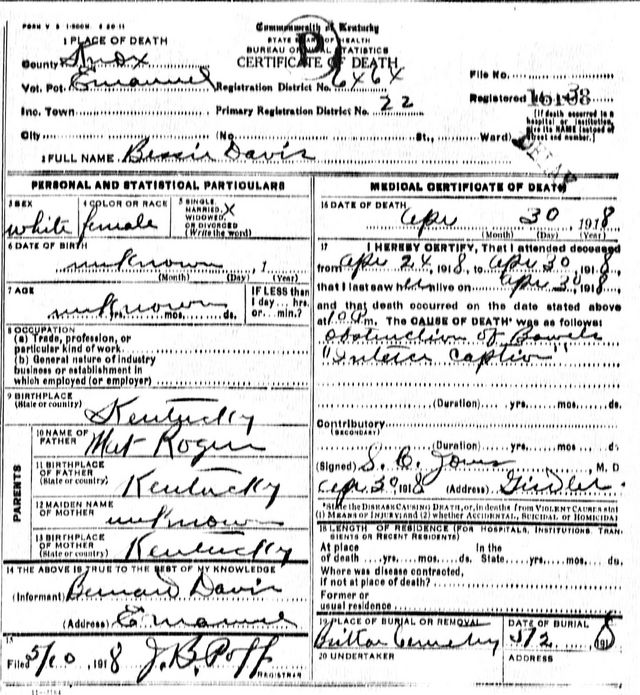 FORM V S 1-500M. 5 20 11
Commonwealth of Kentucky
STATE BOARD OF HEALTH
BUREAU OF VITAL STATISTICS
CERTIFICATE OF DEATH
1 PLACE OF DEATH
County Knox
Vot. Pct. Emanuel Registration District No. 6464 File No.
Inc. Town Primary Registration District No. 22 Registered No.
City (No St., Ward)
[If death occurred in a hospital or institution, give its NAME instead of street and number.]
2 FULL NAME Bessie Davis
PERSONAL AND STATISTICAL PARTICULARS
3 SEX 4 COLOR OR RACE 5 SINGLE, MARRIED, X WIDOWED, OR DIVORCED (Write the word)
white female
6 DATE OF BIRTH
unknown , 1
(Month) (Day) (Year)
7 AGE IF LESS than 1 day hrs. or min.?
unknown
yrs. mos. ds.
8 OCCUPATION
(a) Trade, profession, or
particular kind of work
(b) General nature of industry
business or establishment in
which employed (or employer)
9 BIRTHPLACE
(State or country) Kentucky
PARENTS
10 NAME OF
FATHER Mat
11 BIRTHPLACE
OF FATHER
(State or country) Kentucky
12 MAIDEN NAME
OF MOTHER unknown
13 BIRTHPLACE
OF MOTHER
(State or country) Kentucky
14 THE ABOVE IS TRUE TO THE BEST OF MY KNOWLEDGE
(Informant) Bernard Davis
(Address) Emanuel
15
Filed 5/10, 1918 J. B. Poff
REGISTRAR
MEDICAL CERTIFICATE OF DEATH
16 DATE OF DEATH
Apr 30, 1918
(Month) (Day) (Year)
17 I HEREBY CERTIFY, That I attended deceased
from Apr 24, 1918, to Apr 30 1918,
that I last saw her alive on Apr 30 1918,
and that death occurred on the date stated above
at 10 P m. The CAUSE OF DEATH* was as follows:
Obstruction of Bowels
(Duration) yrs. mos. ds.
Contributory
(SECONDARY)
(Duration) yrs. mos. ds.
(Signed) S. C. Jones, M. D
Apr 30 1918 (Address)
*State the DISEASE CAUSING DEATH, or, in deaths from VIOLENT CAUSES state
(1) MEANS OF INJURY; and (2) whether ACCIDENTAL, SUICIDAL or HOMICIDAL
18 LENGTH OF RESIDENCE (FOR HOSPITALS, INSTITUTIONS, TRANSIENTS OR RECENT RESIDENTS)
At place In the
of death yrs. mos. ds. State yrs. mos. ds.
Where was disease contracted,
if not at place of death?
Former or
usual residence
19 PLACE OF BURIAL OR REMOVAL DATE OF BURIAL
Cemetery 5/2 8
20 UNDERTAKER ADDRESS